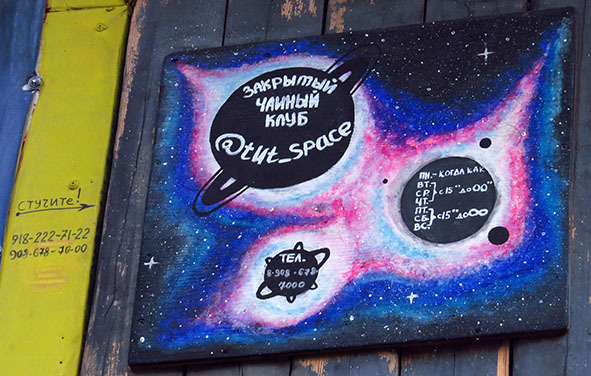 СТУЧИТЕ!
918-222-71-22
908-678-70-00
ЗАКРЫТЫЙ
ЧАЙНЫЙ
КЛУБ
@tyt_space
ПН.-КОГДА КАК
ВТ.
СР. с 15⁰⁰ до 00⁰⁰
ЧТ.
ПТ.
СБ. с 15⁰⁰ до ∞
ВС.
ТЕЛ.
8-908-678-
7000